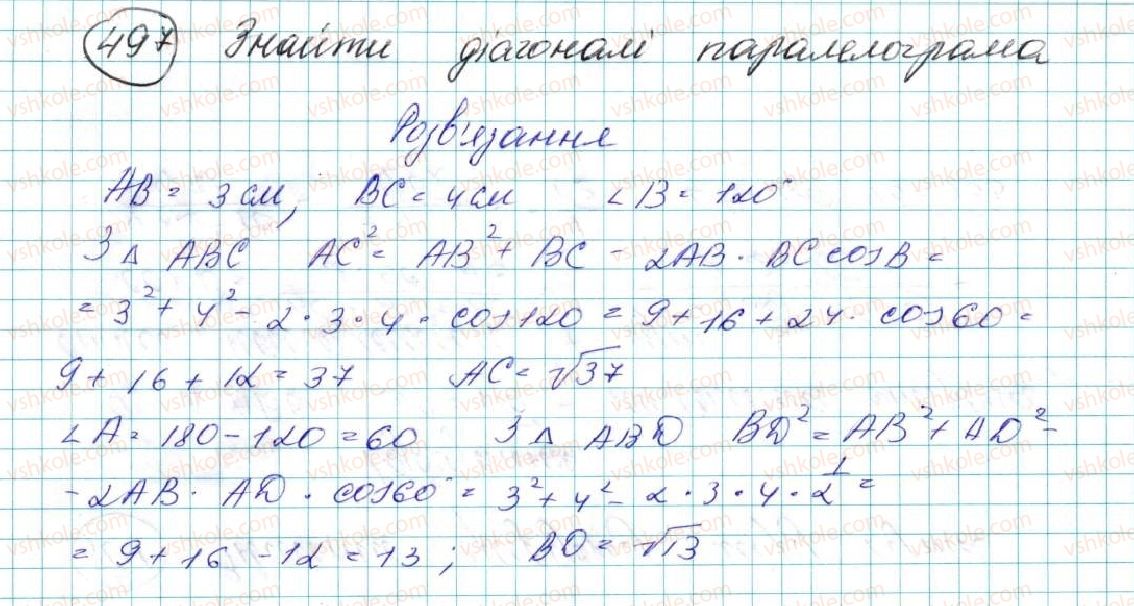 497 Знайти діагоналі паралелограма
Розв'язання
AB = 3 см, BC = 4 см ∠B = 120°
З Δ ABC AC² = AB² + BC - 2AB · BC cosB =
= 3² + 4² - 2 · 3 · 4 · cos120 = 9 + 16 + 24 · cos60 =
9 + 16 + 12 = 37 AC = √37
∠A = 180 - 120 = 60 З Δ ABD BD² = AB² + AD² -
- 2AB · AD · cos60° = 3² + 4² - 2 · 3 · 4 · 1/2 =
= 9 + 16 - 12 = 13; BD = √13